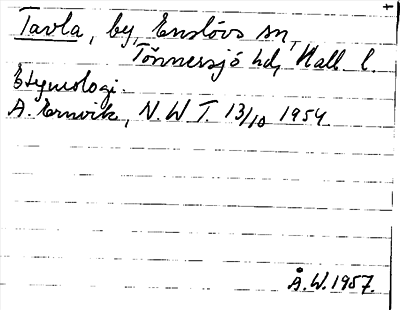 Tavla, by, Enslövs sn,
Tönnersjö hd, Hall. l.
Etymologi.
A. Ernvik, N. W T. 13/10 1954.
Å. W. 1957.